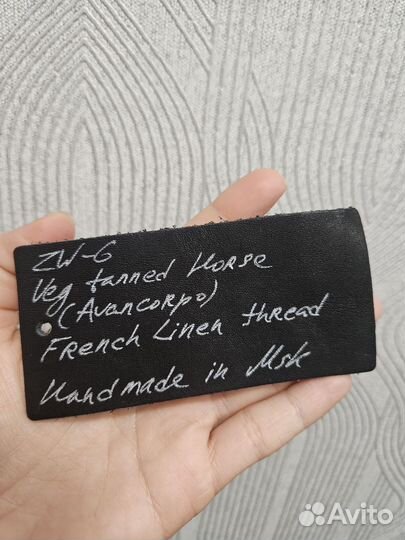 ZW-6
Veg tanned Horse
(Avancorpo)
French Linen thread
Handmade in Msk
Avito